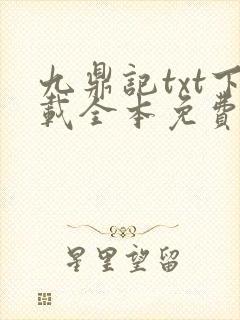 九鼎記txt下
載全本免費
星里望留